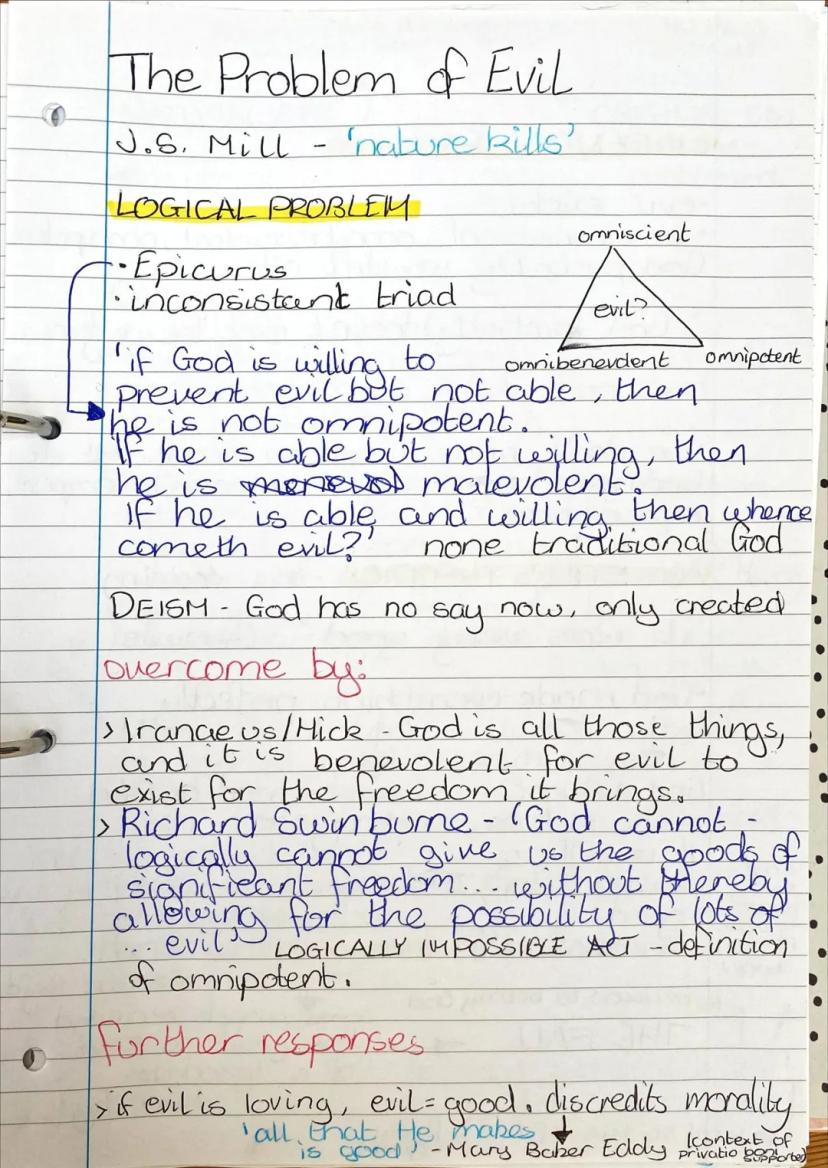 The Problem of Evil
J.S. Mill - 'nature kills'
LOGICAL PROBLEM
omniscient
· Epicurus
· inconsistant triad
evil?
omnibenevolent
omnipotent
'if God is willing to
prevent evil but not able, then
he is not omnipotent.
If he is able but not willing, then
he is malevolent.
If he is able and willing then whence
cometh evil?' none traditional God
DEISM - God has no say now, only created
overcome by:
> Iranaeus/Hick - God is all those things,
and it is benevolent for evil to
exist for the freedom it brings.
> Richard Swinburne - 'God cannot -
logically cannot give us the goods of
significant freedom... without thereby
allowing for the possibility of lots of
... evil' LOGICALLY IMPOSSIBLE ACT - definition
of omnipotent.
further responses
> if evil is loving, evil = good. discredits morality
'all that He makes
is good' - Mary Baker Eddy
(context of
privatio boni
supported)